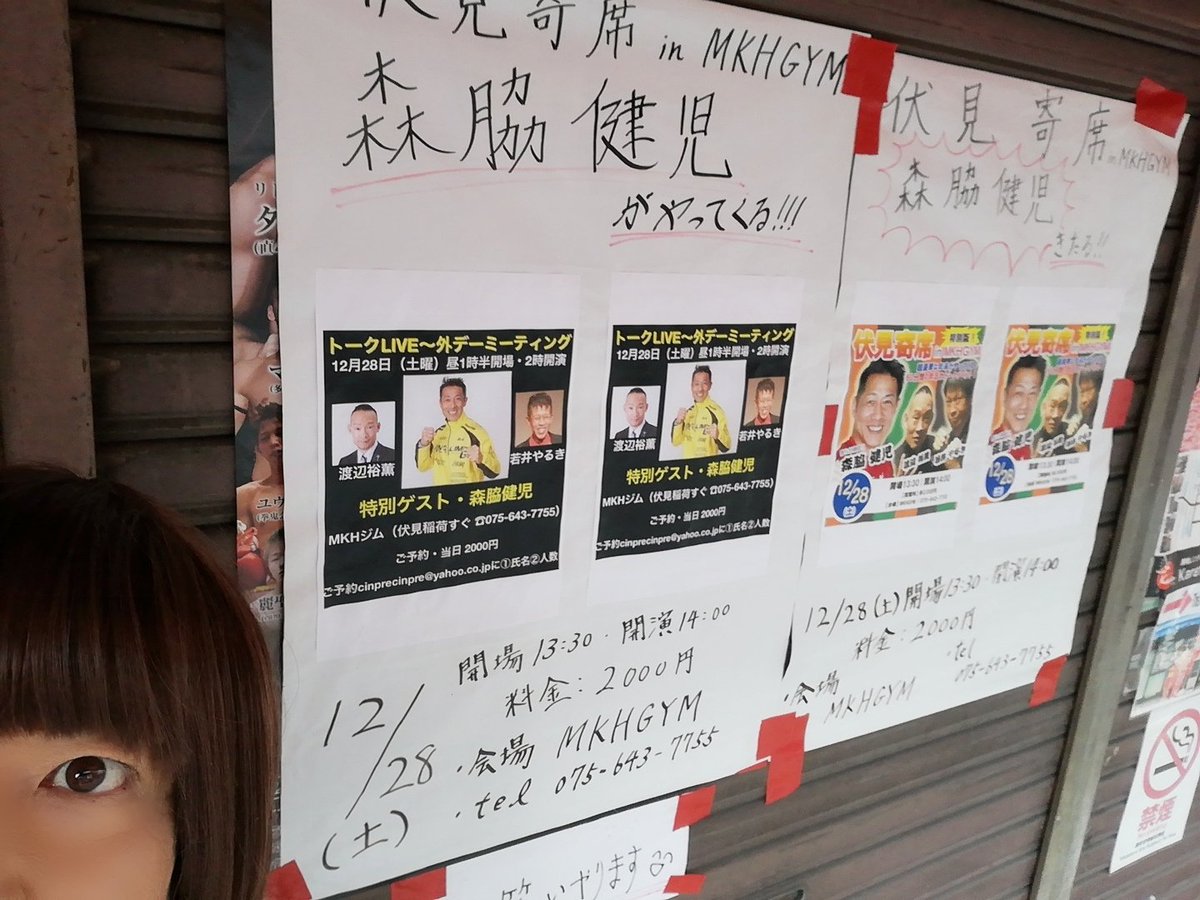 伏見寄席 in MKHGYM
森脇健児
がやってくる!!!
トークLIVE〜外デーミーティング
12月28日（土曜）昼1時半開場・2時開演
渡辺裕薫
若井やるき
特別ゲスト・森脇健児
MKHジム（伏見稲荷すぐ ☎075-643-7755)
ご予約・当日 2000円
ご予約cinprecinpre@yahoo.co.jpに①氏名②人数
トークLIVE〜外デーミーティング
12月28日（土曜）昼1時半開場・2時開演
渡辺裕薫
若井やるき
特別ゲスト・森脇健児
MKHジム（伏見稲荷すぐ ☎075-643-7755)
ご予約・当日 2000円
ご予約cinprecinpre@yahoo.co.jpに①氏名②人数
12/28(土)
開場 13:30・開演 14:00
料金:2000円
・会場 MKHGYM
・tel 075-643-7755
伏見寄席 in MKHGYM
森脇健児
きたる!!
伏見寄席
in MKHGYM
森脇 健児
12/28
開場13:30 開演14:00
伏見寄席
森脇 健児
12/28
12/28(土)開場13:30・開演14:00
料金:2000円
・会場 MKHGYM
・tel 075-643-7755
笑いやります
禁煙